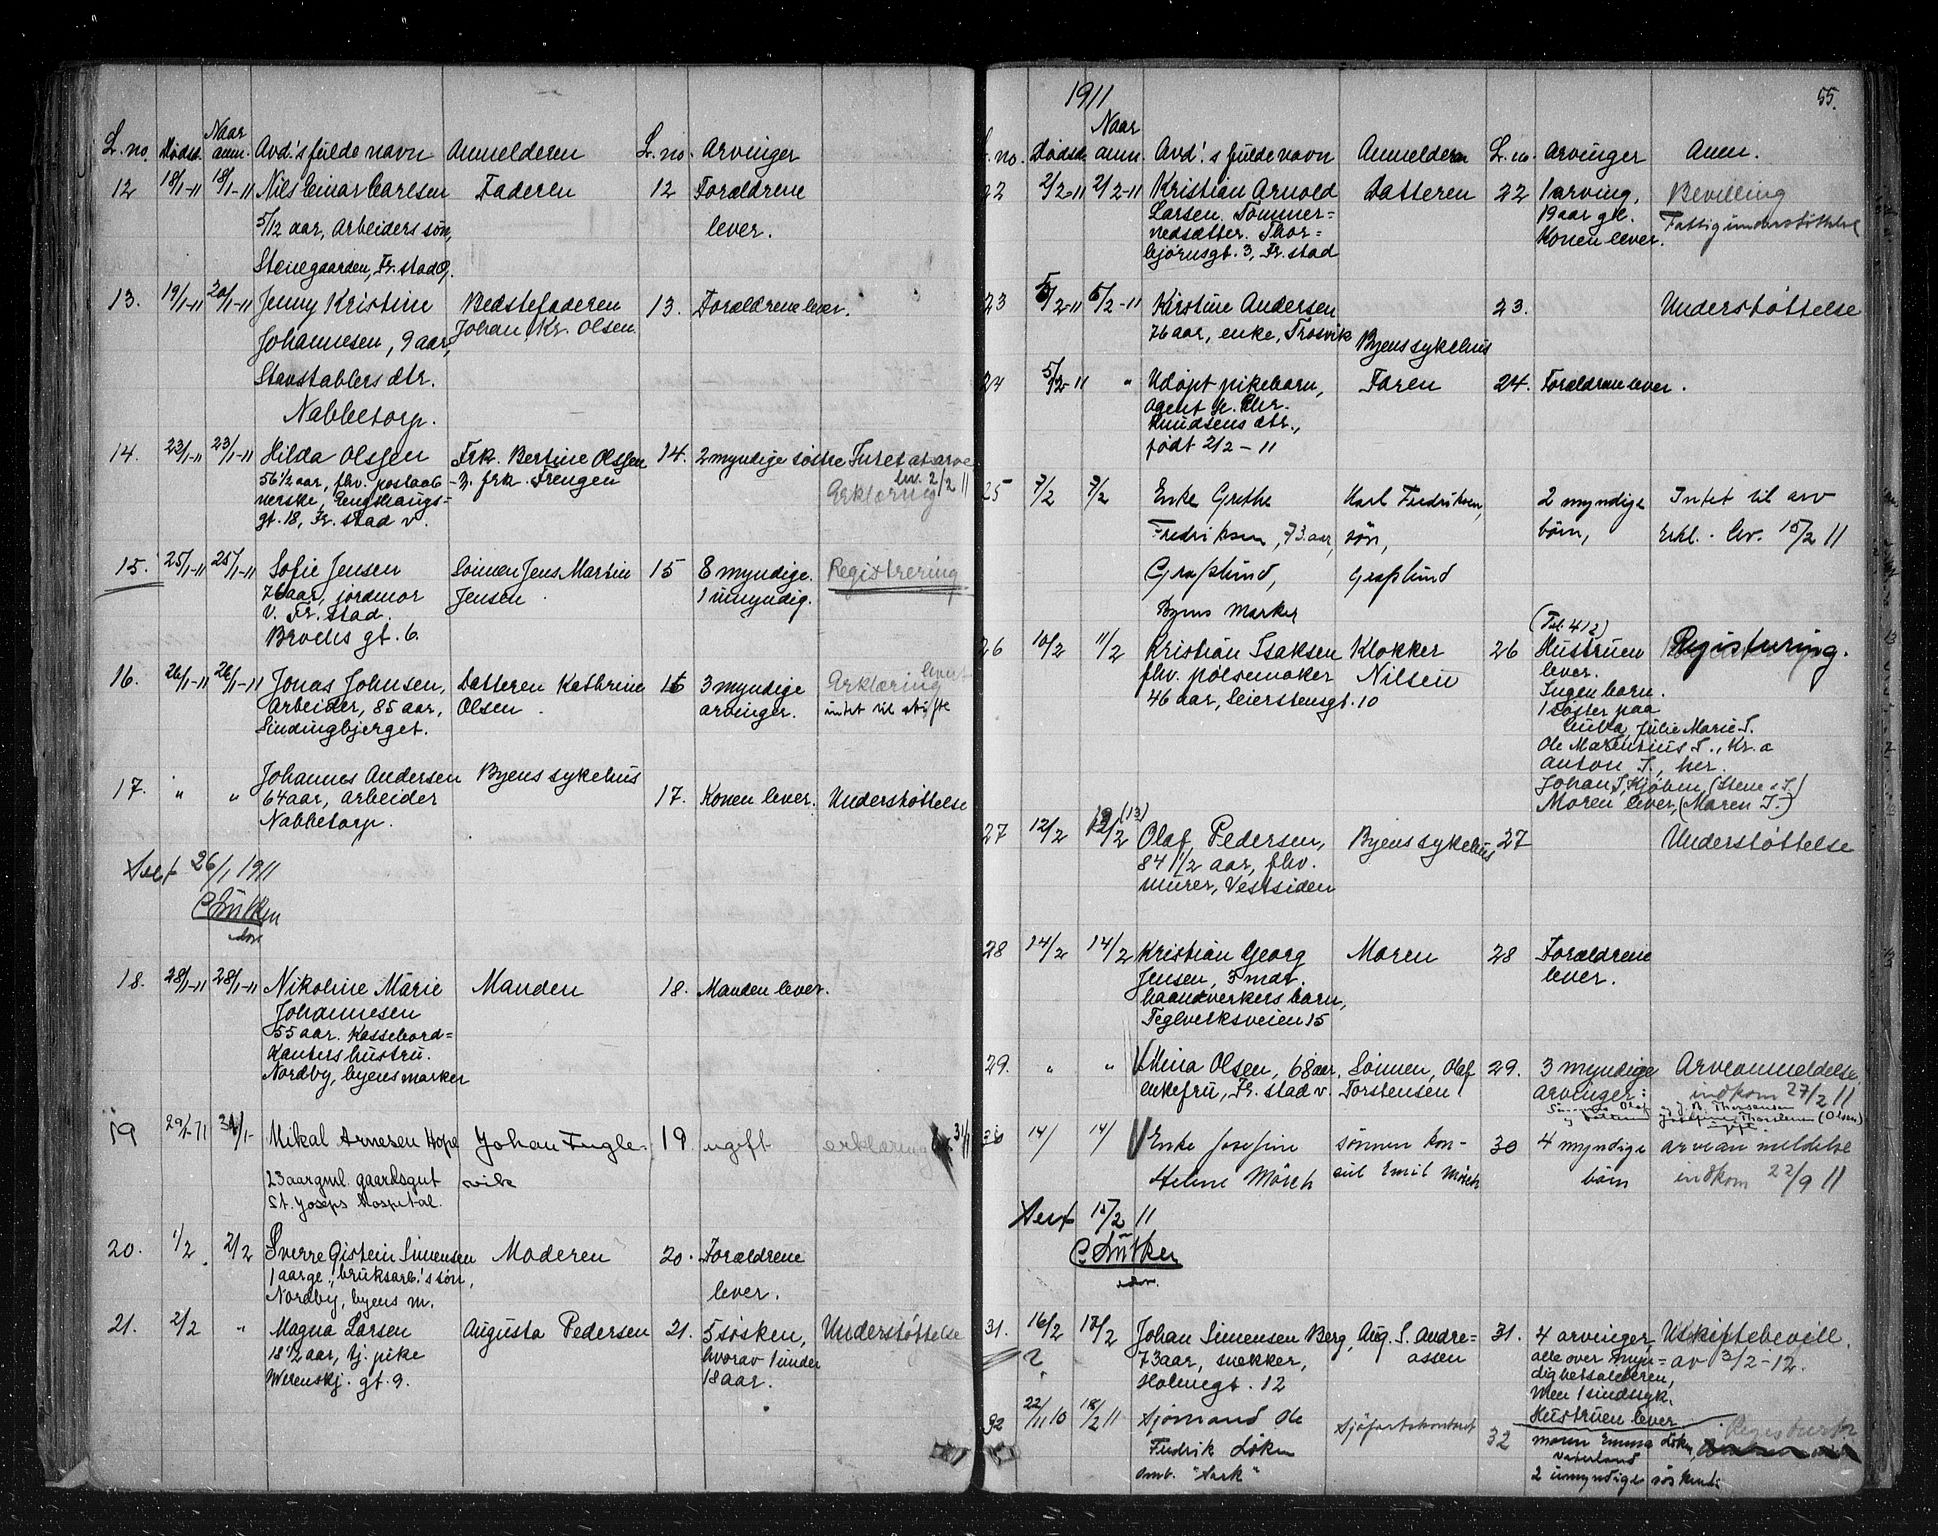 L. no. Dødsd. Naar anm. Avd.'s fulde navn Anmelderen L. no. Arvinger
12 18/1-11 18/1-11 Nils Einar Carlsen Faderen 12 Forældrene
5/12 aar, Arbeiders søn, lever.
Stenegaarden, Fr.stad Ø.
13. 19/1-11 20/1-11 Jenny Kristine Bedstefaderen 13. Forældrene lever.
Johannesen, 9 aar, Johan Kr. Olsen
Stavstablers dtr.
Nabbetorp.
14. 23/1-11 23/1-11 Hilda Olsen Frk. Bertine Olsen 14. 2 myndige søstre Intet at arve
56 1/2 aar, fhv. postaab- z. frk. Frengen lev. 2/2 11
nerske, Enghaugs- Erklæring
gt. 18, Fr.stad v.
15. 25/1-11 25/1-11 Sofie Jensen Sønnen Jens Martin 15 8 myndige. Registrering
76 aar, jordmor Jensen 1 umyndig.
V. Fr.stad.
Brochs gt. 6.
16. 26/1-11 26/1-11 Jonas Johnsen, Datteren Kathrine 16 3 myndige Erklæring levert
Arbeider, 85 aar, Olsen. arvinger. intet til skifte
Sindingbjerget.
17. " " Johannes Andersen Byens sykehus 17. Konen lever. Understøttelse
64 aar, arbeider
Nabbetorp.
Seet 26/1 1911
C. Lütken
18. 28/1-11 28/1-11 Nikoline Marie Manden 18. Manden lever.
Johannesen
55 aar. Kassebord=
kanters hustru.
Nordby, byens marker
19 29/1-11 31/1- Mikal Arnesen Hope Johan Fugle- 19 ugift erklæring lev. 31/1
23 aar gml. gaardsgut vik
St. Josephs Hospital.
20. 1/2 2/2 Sverre Øistein Simensen Moderen 20. Forældrene
1 aar gl., bruksarb.'s søn, lever.
Nordby, byens m.
21. 2/2 " Magna Larsen Augusta Pedersen 21. 5 søsken, Understøttelse
18 1/2 aar, tj. pike hvorav 1 under
Werenskj. gt. 9. 18 aar.
1911 55.
L. no. Dødsd. Naar anm. Avd.'s fulde navn Anmelderen L. no. Arvinger Anm.
22 2/2-11 2/2-11 Kristian Arnold Datteren 22 1 arving, Bevilling
Larsen. Tømmer= 19 aar gl. Fattigunderstøttelse
nedsætter. Thor= Konen lever.
bjørnsgt. 3, Fr.stad
23 5/2-11 6/2-11 Kirstine Andersen 23. Understøttelse
76 aar, enke, Trosvik Byens sykehus
24 5/2-11 " Udøpt pikebarn, Faren 24. Forældrene lever.
Agent H. Chr.
Knudsens dtr.,
født 2/2-11
25 7/2 9/2 Enke Grethe Karl Fredriksen, 2 myndige Intet til arv
Fredriksen, 73 aar, søn, børn, erkl. lev. 15/2 11
Græslund, Græslund
Byens Marker
26 10/2 11/2 Kristian Isaksen Klokker 26 (Tel. 412) Registrering.
fhv. pølsemaker Nilsen Hustruen
46 aar, Seierstensgt. 10 lever.
Ingen barn.
1 søster paa
Cuba, Julie Marie I.
Ole Martinius I., Kr.a
Anton I., her.
Johan I, Kjøbm. (Stene I.)
Moren lever, (Maren I.)
27 12/2 12/2 (13) Olaf Pedersen, Byens sykehus 27 Understøttelse
84 1/2 aar, fhv.
murer, Vestsiden
28 14/2 14/2 Kristian Georg Moren 28 Forældrene
Jensen, 5 mdr. lever.
haandverkers barn,
Teglverksveien 15
29. " " Mina Olsen, 68 aar, Sønnen, Olaf 29. 3 myndige Arveanmeldelse
enkefru, Fr.stad v. Torstensen arvinger: indkom 27/2 11
30 14/ 14/ Enke Josefine sønnen kon- 30 4 myndige arveanmeldelse
Helene Mörch sul Emil Mörch børn indkom 22/9 11
Seet 15/2 11
C. Lütken
31. 16/2 17/2 Johan Simensen Berg, Aug. S. Andre= 31. 4 arvinger, Uskiftebevill.
? 73 aar, snekker, assen alle over myn= av 3/2-12.
Holmegt. 12 dighetsalderen,
men 1 sindssyk.
Hustruen lever.
32 22/11 10 18/2 11 Sjømand Ole Sjøfartskontoret 32 moren Emma Løken,
Fredrik Løken Vaterland
omb. "Sark" 2 umyndige søskende